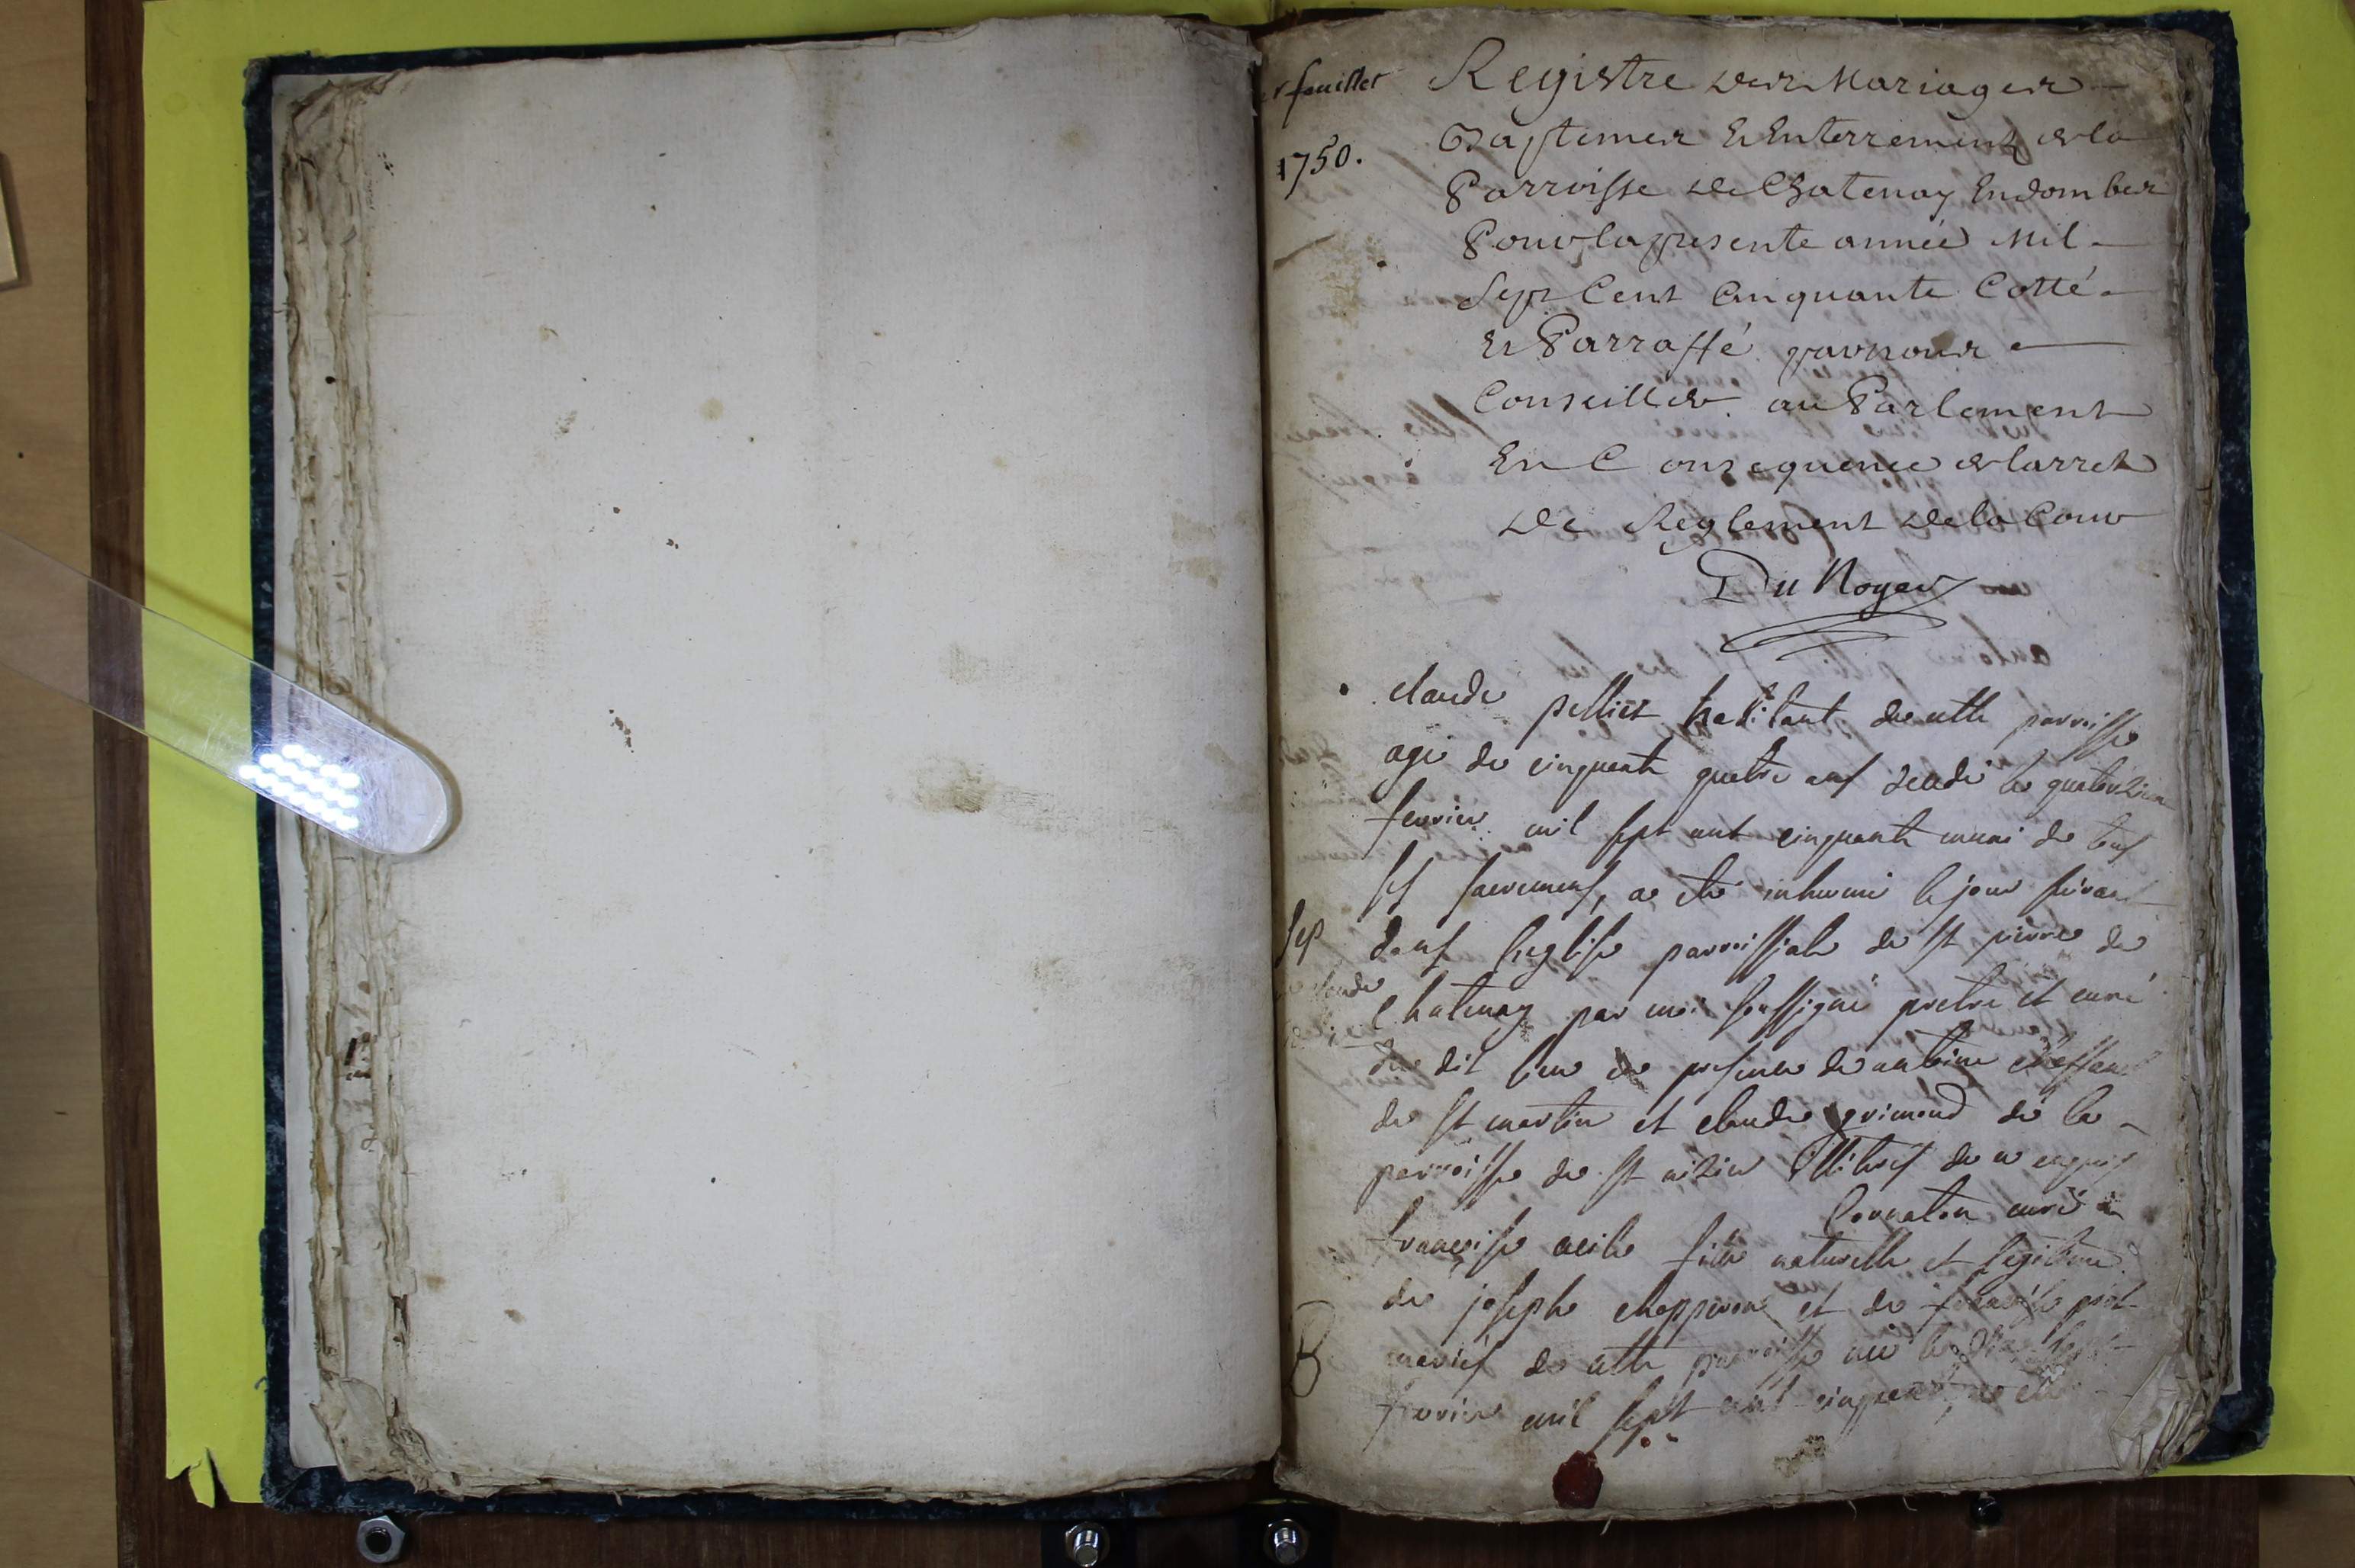 er feuillet
1750.
Registre des Mariages
Baptemes Et Enterrements de la
Parroisse de Chatenay En dombes
Pour la presente année Mil
Sept Cent Cinquante Cotté
Et Parraffé par nous
Conseiller au Parlement
En Consequence de larrest
De Reglement de la Cour
Du Noyer
claude pellier habitant de cette parroisse
agé de cinquante quatre ans decedé le quatorzieme
fevrier mil sept cent cinquante muni de tous
ses sacremens, a eté inhumé le jour suivant
Sep
dans leglise parroissiale de st pierre de
claude
Chatenay par moi soussigné pretre et curé
du dit lieu en presence de antoine
de st martin et claude grimond de la
parroisse de st nizier illiterés de ce enquis
Cornaton curé
françoise fille naturelle et legitime
de joseph chapperon et de françoise
B
mariés de cette parroisse née le
fevrier mil sept cent cinquante, a eté